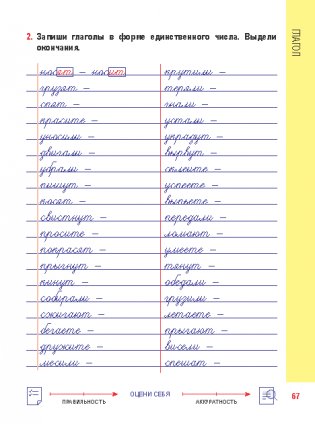 2. Запиши глаголы в форме единственного числа. Выдели
окончания.
ГЛАГОЛ
носят – носит
грузят –
спят –
красите –
уносили –
двигали –
убрали –
пишут –
косят –
свистнут –
просите –
покрасят –
прыгнут –
кинут –
собирали –
сжигают –
бегаете –
дружите –
месили –
крутили –
теряли –
гнали –
устали –
украдут –
вырвут –
склеите –
успеете –
выпьете –
передали –
ломают –
умеете –
тянут –
обедали –
грузили –
летаете –
прыгают –
висели –
спешат –
ПРАВИЛЬНОСТЬ
ОЦЕНИ СЕБЯ
АККУРАТНОСТЬ
67